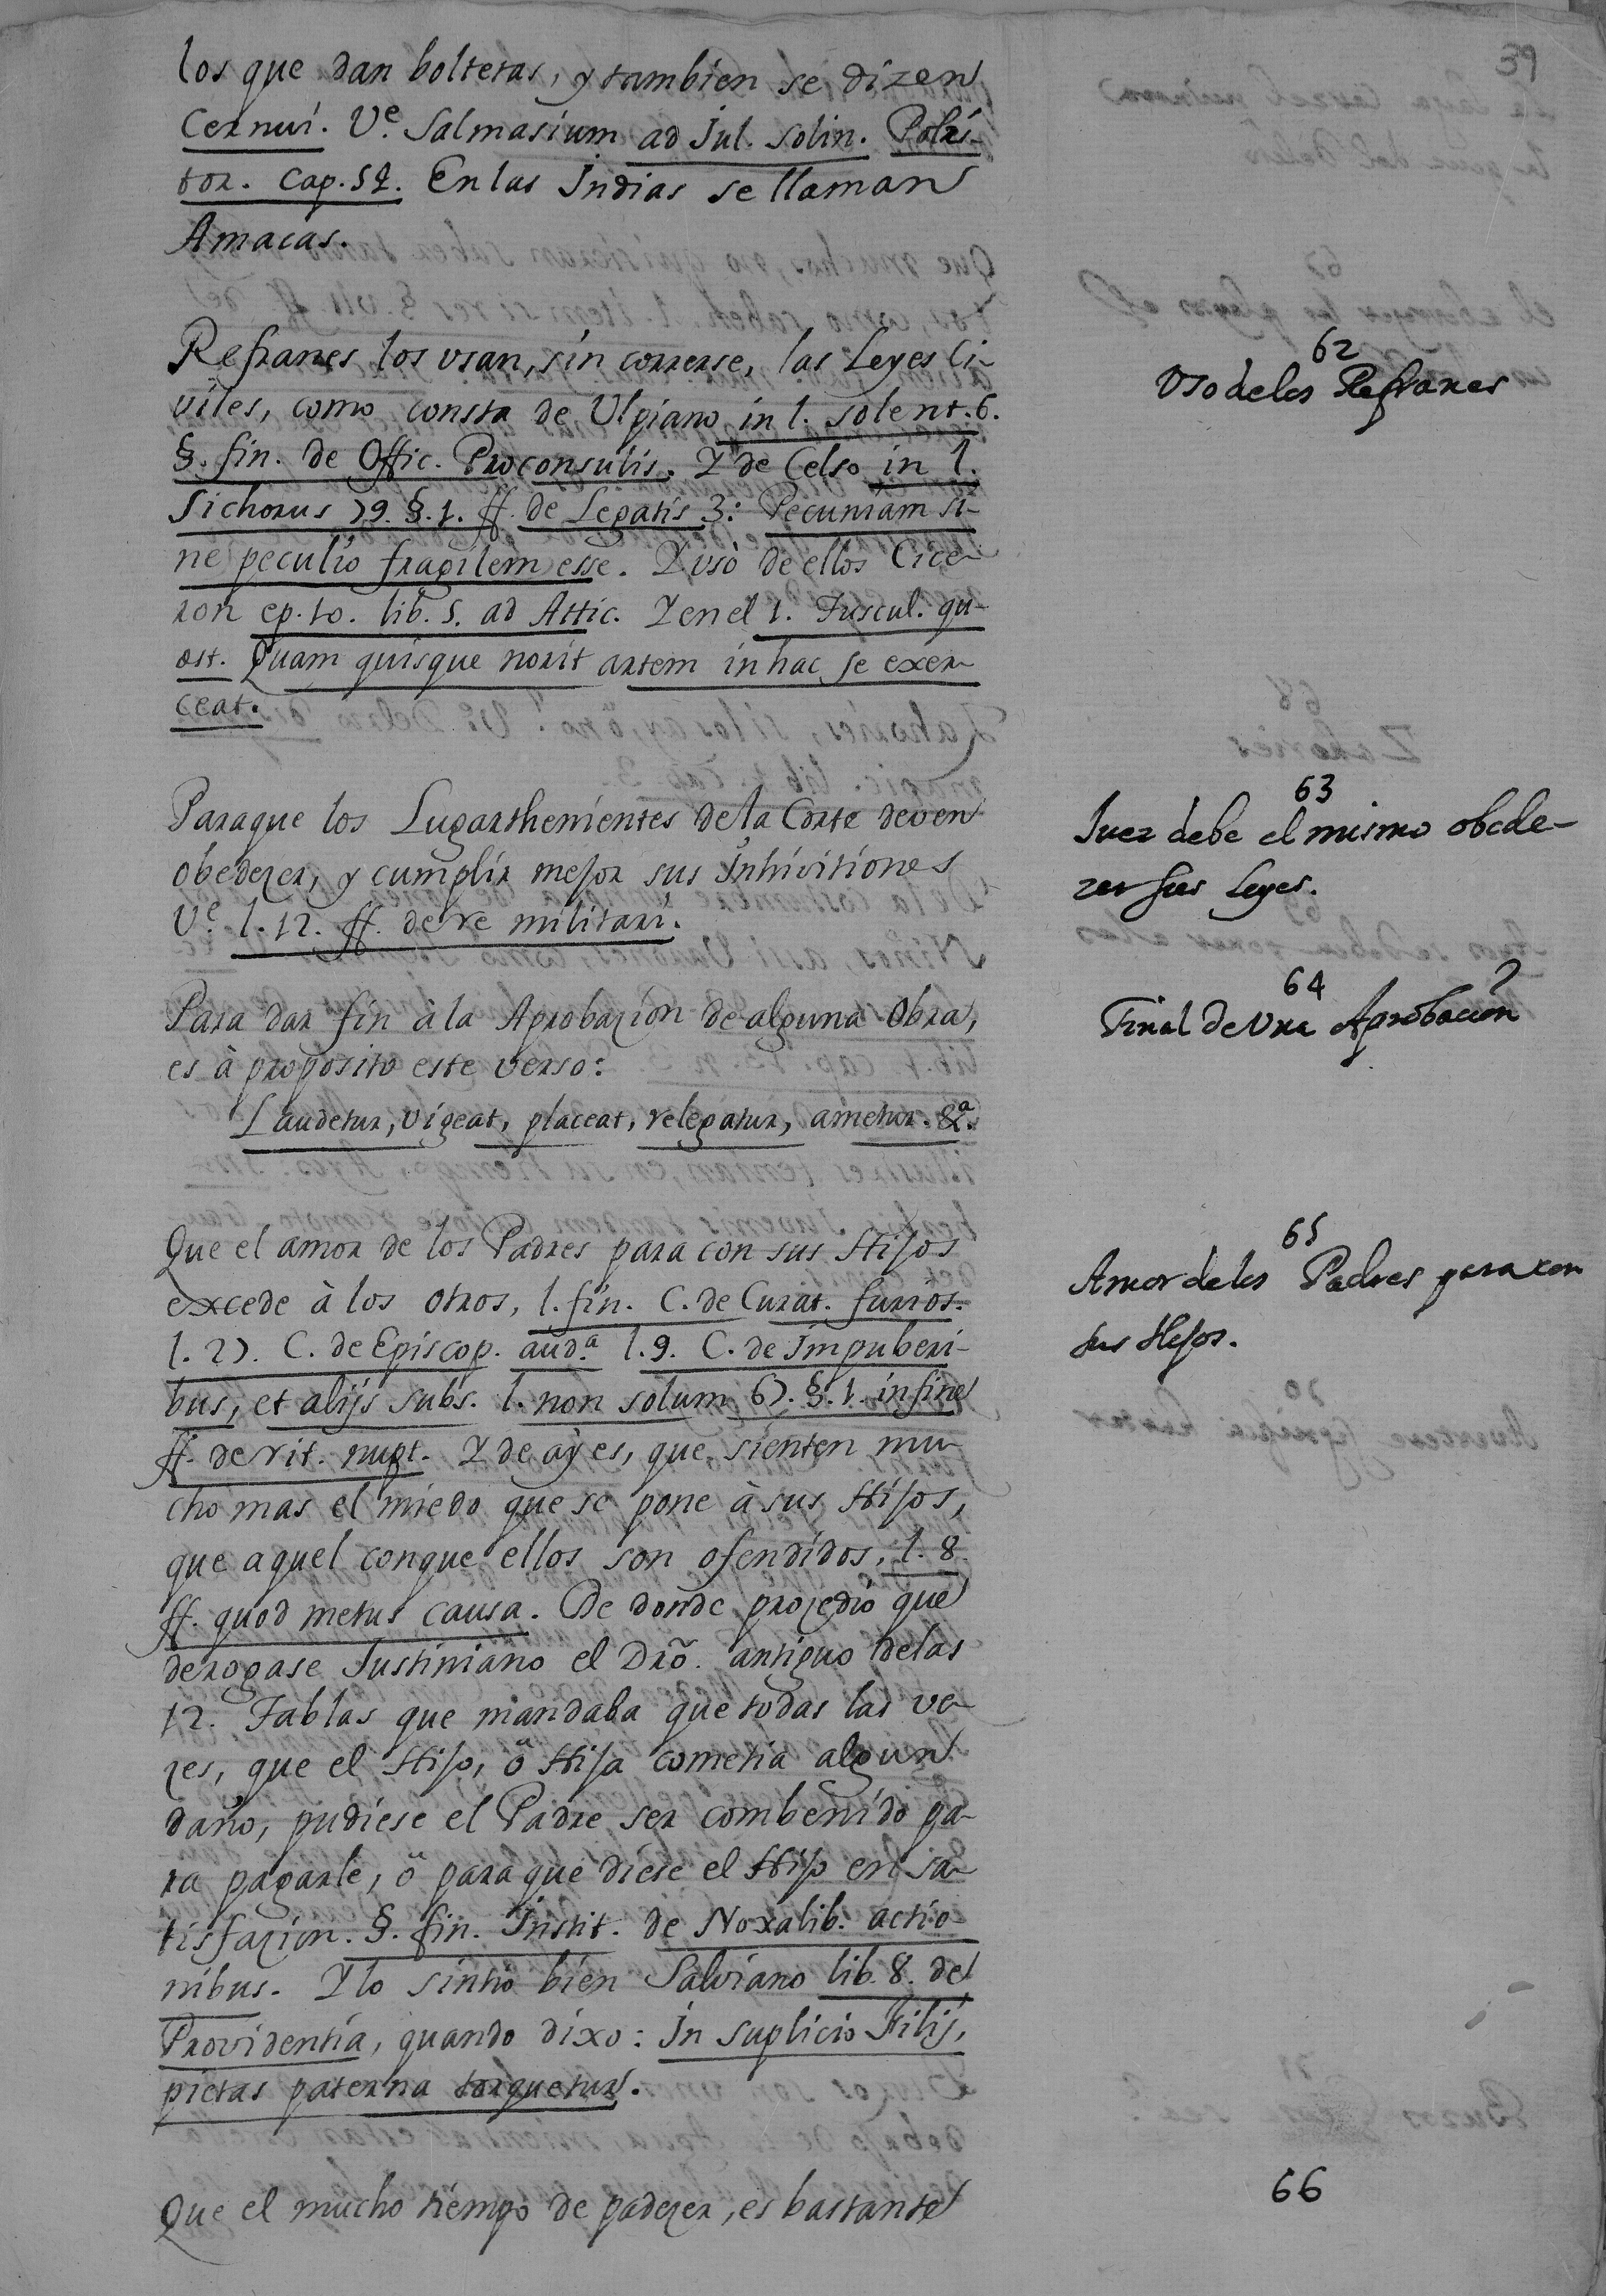 39
los que dan bolteras, y tambien se dizen
Cernui. Vᵉ. Salmasium ad Jul. Solin. Polÿs-
tor. Cap. 52. En las Indias se llaman
Amacas.
62
Uso de los Refranes
Refranes los usan, sin correrse, las Leyes Ci-
viles, como consta de Ulpiano in l. solent. 6.
§. fin. de Offic. Proconsulis. Y de Celso in l.
Sichorus 79. §. 1. ff. de Legatis 3: Pecuniam si-
ne peculio fragilem esse. Y usò de ellos Cice-
ron ep. 10. lib. 5. ad Attic. Y en el 1. Tuscul. qu-
æst. Quam quisque norit artem in hac se exer-
ceat.
63
Juez debe el mismo obede-
zer sus Leyes.
Paraque los Lugarthenientes de la Corte deven
obedezer, y cumplir mejor sus Inhivitiones
Vᵉ l. 12. ff. de re militari.
64
Final de Una Aprobacion
Para dar fin à la Aprobazion de alguna Obra,
es à proposito este verso:
Laudetur, vigeat, placeat, relegatur, ametur. &ᵃ.
65
Amor de los Padres para con
sus Hijos.
Que el amor de los Padres para con sus Hijos
excede à los otros, l. fin. C. de Curat. furios.
l. 27. C. de Episcop. audᵃ. l. 9. C. de Impuberi-
bus, et alijs subs. l. non solum 67. §. 1. in fine
ff. de rit. nupt. Y de aÿ es, que sienten mu-
cho mas el miedo que se pone à sus Hijos,
que aquel conque ellos son ofendidos, l. 8.
ff. quod metus causa. De donde prozediò que
derogase Justiniano el Drõ. antiguo de las
12. Tablas que mandaba que todas las ve-
zes, que el Hijo, ò Hija cometia algun
daño, pudiese el Padre ser combenido pa-
ra pagarle, ò paraque diese el Hijo en sa-
tisfazion. §. fin. Instit. de Noxalib. actio-
nibus. Y lo sintiò bien Salviano lib. 8. de
Providentia, quando dixo: In suplicio Filij,
pietas paterna torquetur.
66
Que el mucho tiempo de padezer, es bastante